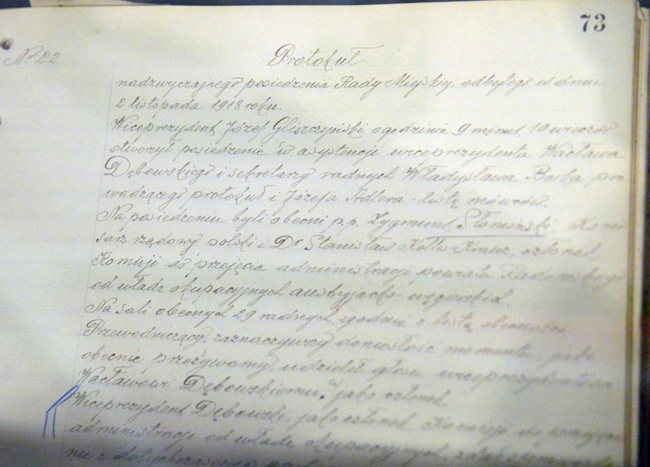 73
№ 22.
Protokuł
nadzwyczajnego posiedzenia Rady Miejskiej, odbytego w dniu
2 listopada 1918 roku.
Wiceprezydent Józef Gliszczyński o godzinie 9 minut 10 wieczór
otworzył posiedzenie w asystencji wiceprezydenta Wacława
Dębowskiego i sekretarzy radnych Władysława Borka pro-
wadzącego protokuł i Józefa Adlera - listę mówców.
Na posiedzeniu byli obecni p.p. Zygmunt Słomiński, Komi-
sarz rządowy polski i Dr Stanisław Kelles-Krauz, członek
Komisji do przejęcia administracji powiatu Radomskiego
od władz okupacyjnych austryjacko-węgierskich.
Na sali obecnych 29 radnych, zgodnie z listą obecności.
Przewodniczący, zaznaczywszy doniosłość momentu, jaki
obecnie przeżywamy, udzielił głosu wiceprezydentowi
Wacławowi Dębowskiemu, jako członek
Wiceprezydent Dębowski, jako członek Komisji do przejęcia
administracji od władz okupacyjnych,